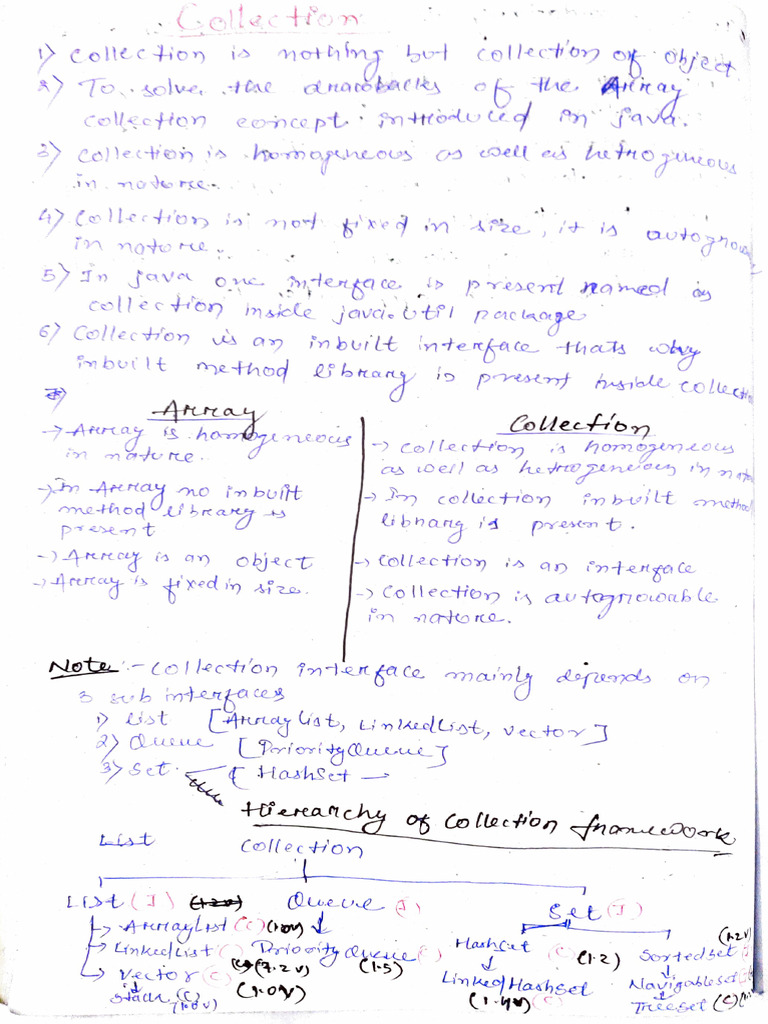 Collection
1) Collection is nothing but collection of object
2) To solve the drawbacks of the Array
collection concept introduced in java.
3) Collection is homogeneous as well as hetrogineous
in nature.
4) Collection is not fixed in size, it is autogrowa
in nature.
5) In java one interface is present named as
collection inside java.util package
6) Collection is an inbuilt interface thats why
inbuilt method library is present inside collection
7)
Array
-> Array is homogeneous
in nature.
-> In Array no inbuilt
method library is
present
-> Array is an object
-> Array is fixed in size.
Collection
-> Collection is homogeneous
as well as hetrogeneous in natu
-> In collection inbuilt method
library is present.
-> Collection is an interface
-> Collection is autogrowable
in nature.
Note :- Collection interface mainly depends on
3 sub interfaces
1) List [ArrayList, LinkedList, Vector]
2) Queue [PriorityQueue]
3) Set [HashSet —
Hierarchy of Collection framework
List Collection
List (I) Queue (I) Set (I)
-> ArrayList (C) (1.2v)
-> LinkedList PriorityQueue (1.5) HashSet (C) (1.2) SortedSet (1.2v)
-> Vector (C) (1.0v) LinkedHashSet (1.4v) (C) NavigableSet
Stack (C) (1.0v) TreeSet (C)